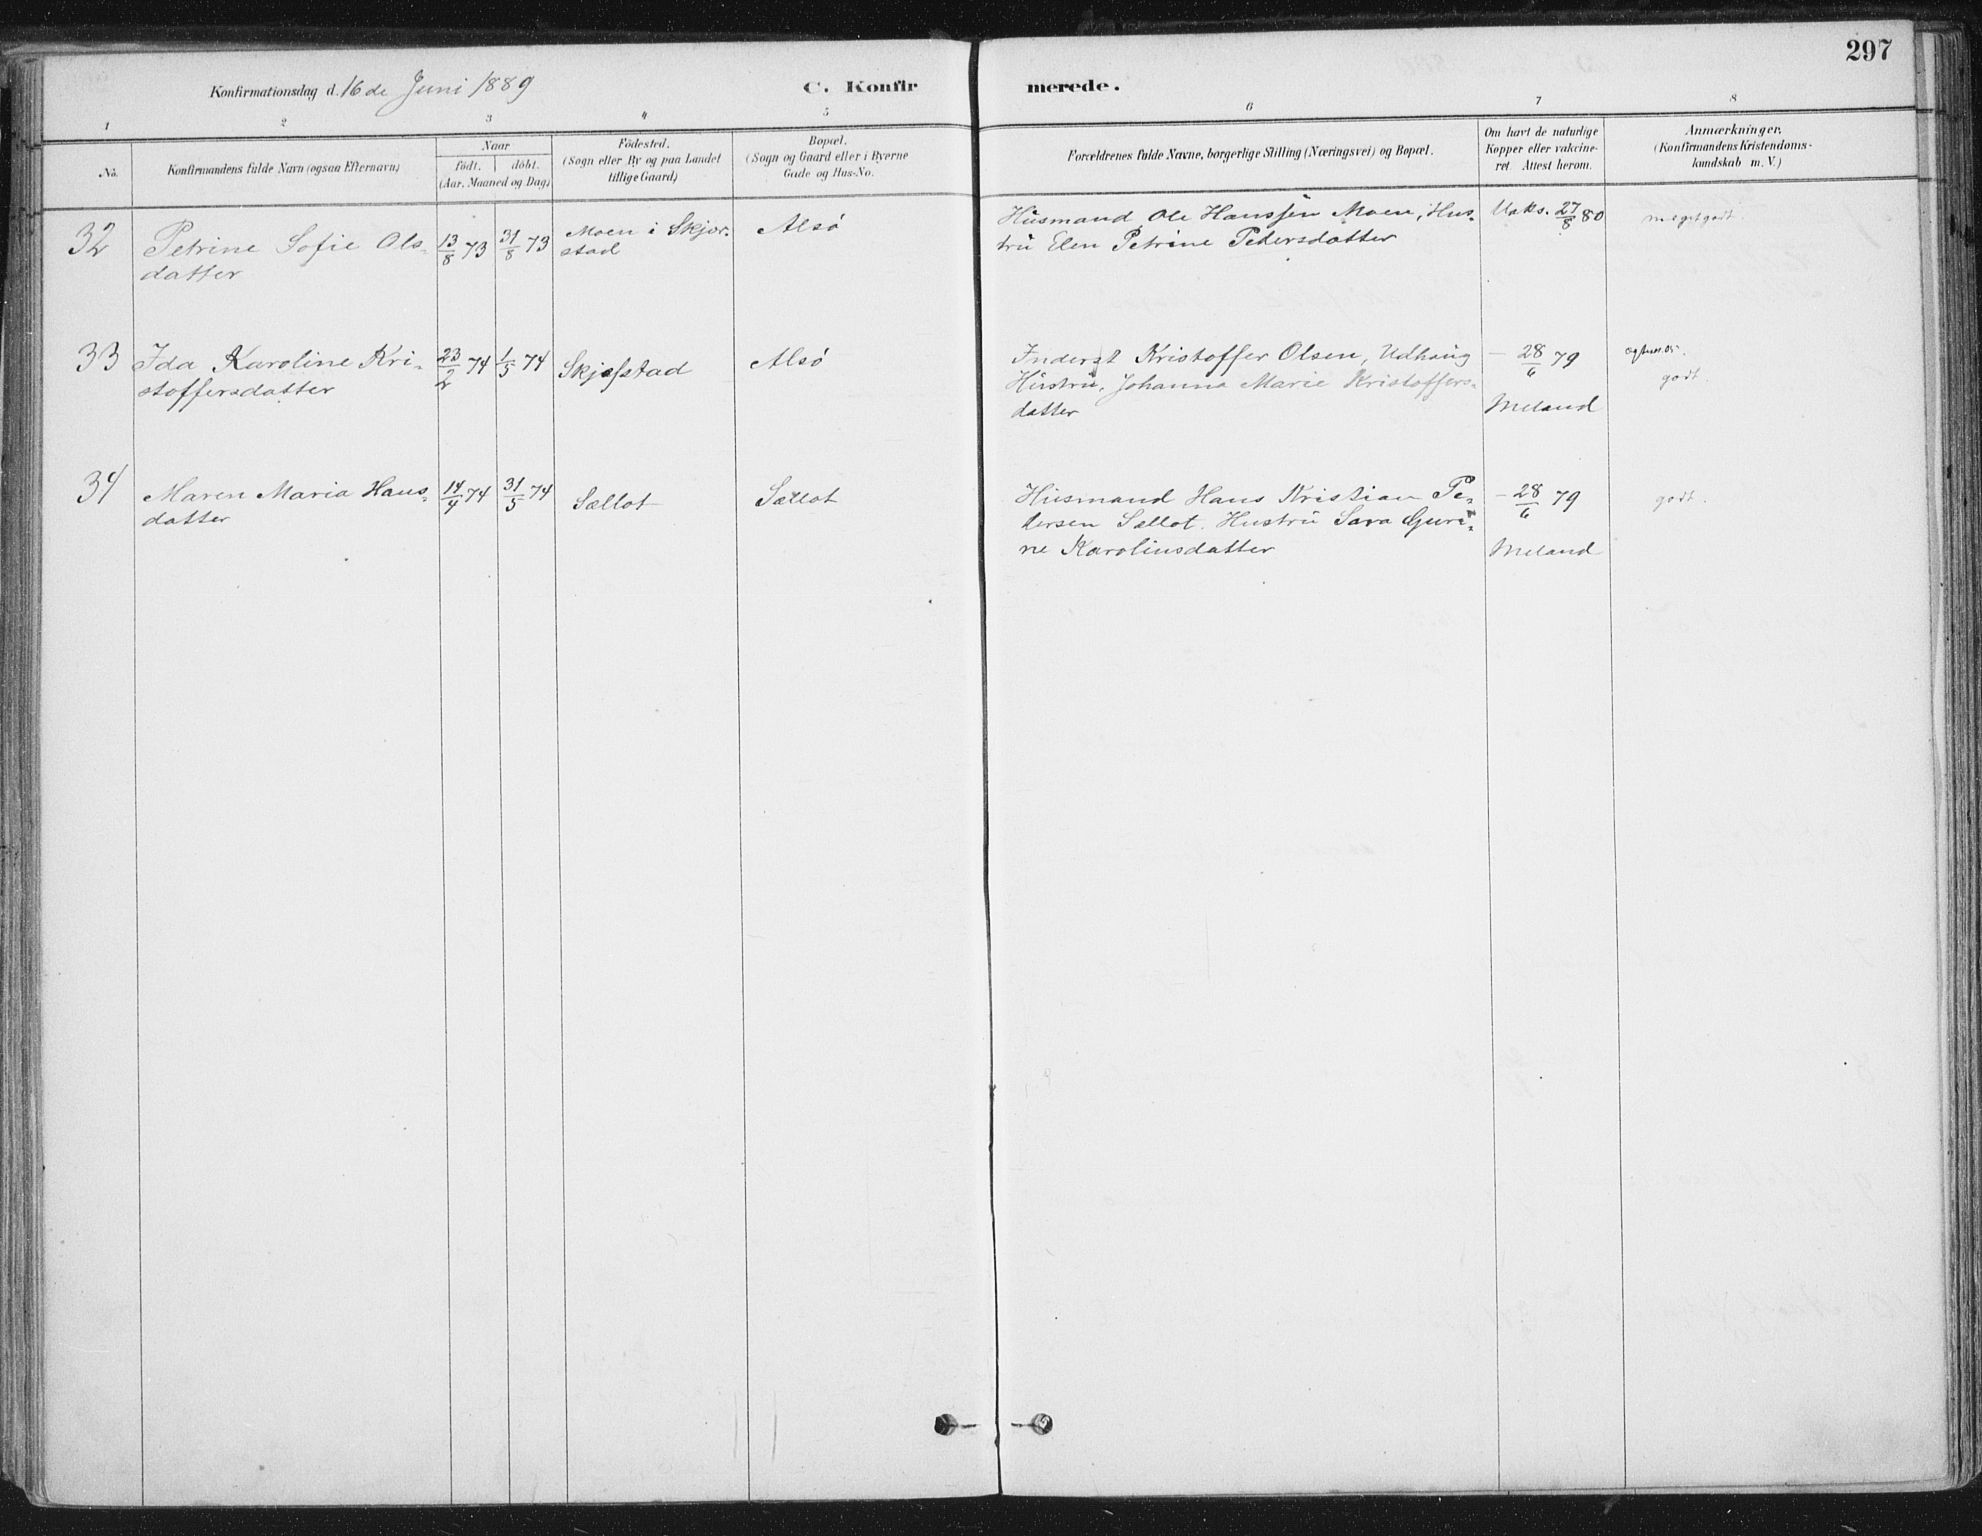 297
Konfirmationsdag d. 16 de Juni 1889
C. Konfirmerede.
1 2 3 4 5 6 7 8
No.
Konfirmandens fulde Navn (ogsaa Efternavn)
Naar
födt. döbt.
(Aar, Maaned og Dag)
Födested.
(Sogn eller By og paa Landet
tillige Gaard)
Bopæl.
(Sogn og Gaard eller i Byerne
Gade og Hus-No.
Forældrenes fulde Navne, borgerlige Stilling (Næringsvei) og Bopæl.
Om havt de naturlige
Kopper eller vakcine-
ret. Attest herom.
Anmærkninger.
(Konfirmandens Kristendoms-
kundskab m. V.)
32
Petrine Sofie Ols-
datter
13/8 73
31/8 73
Moen i Skjer-
stad
Alsø
Husmand Ole Hanssen Moen, Hus-
tru Elen Petrine Petersdatter
Vaks. 27/8 80
megetgodt
33
Ida Karoline Kri-
stoffersdatter
23/2 74
1/5 74
Skjefstad
Alsø
Inderst Kristoffer Olsen, Udhaug
Hustru, Johanna Marie Kristoffers-
datter
— 28/6 79
Meland
godt.
34
Maren Maria Hans-
datter
14/4 74
31/5 74
Sællot
Sællot
Husmand Hans Kristian Pe-
dersen Sællot. Hustru Sara Guri-
ne Karolinsdatter
— 28/6 79
Meland
godt.